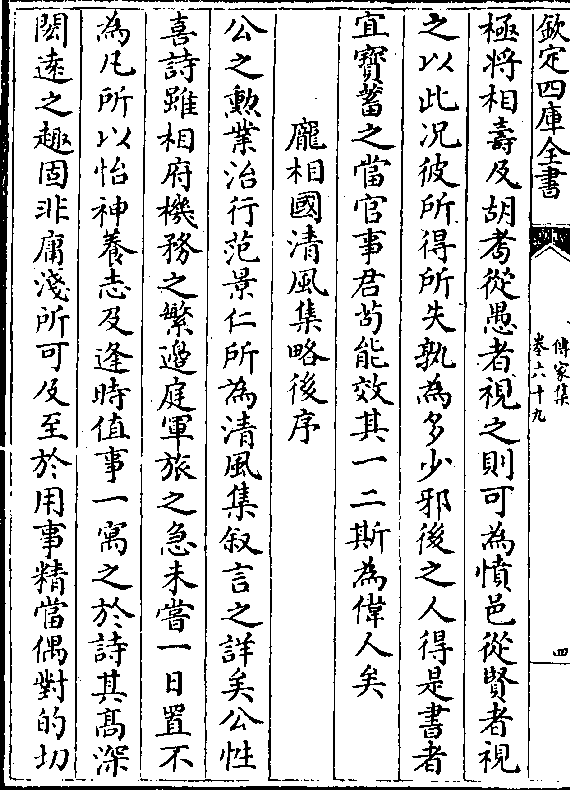 欽定四庫全書
傳家集
卷六十九
四
極將相壽及胡耇從愚者視之則可為憤邑從賢者視
之以此况彼所得所失孰為多少邪後之人得是書者
宜寶蓄之當官事君苟能效其一二斯為偉人矣
龐相國清風集略後序
公之勲業治行范景仁所為清風集叙言之詳矣公性
喜詩雖相府機務之繁邉庭軍旅之急未嘗一日置不
為凡所以怡神養志及逢時值事一寓之於詩其髙深
閎逺之趣固非庸淺所可及至於用事精當偶對的切